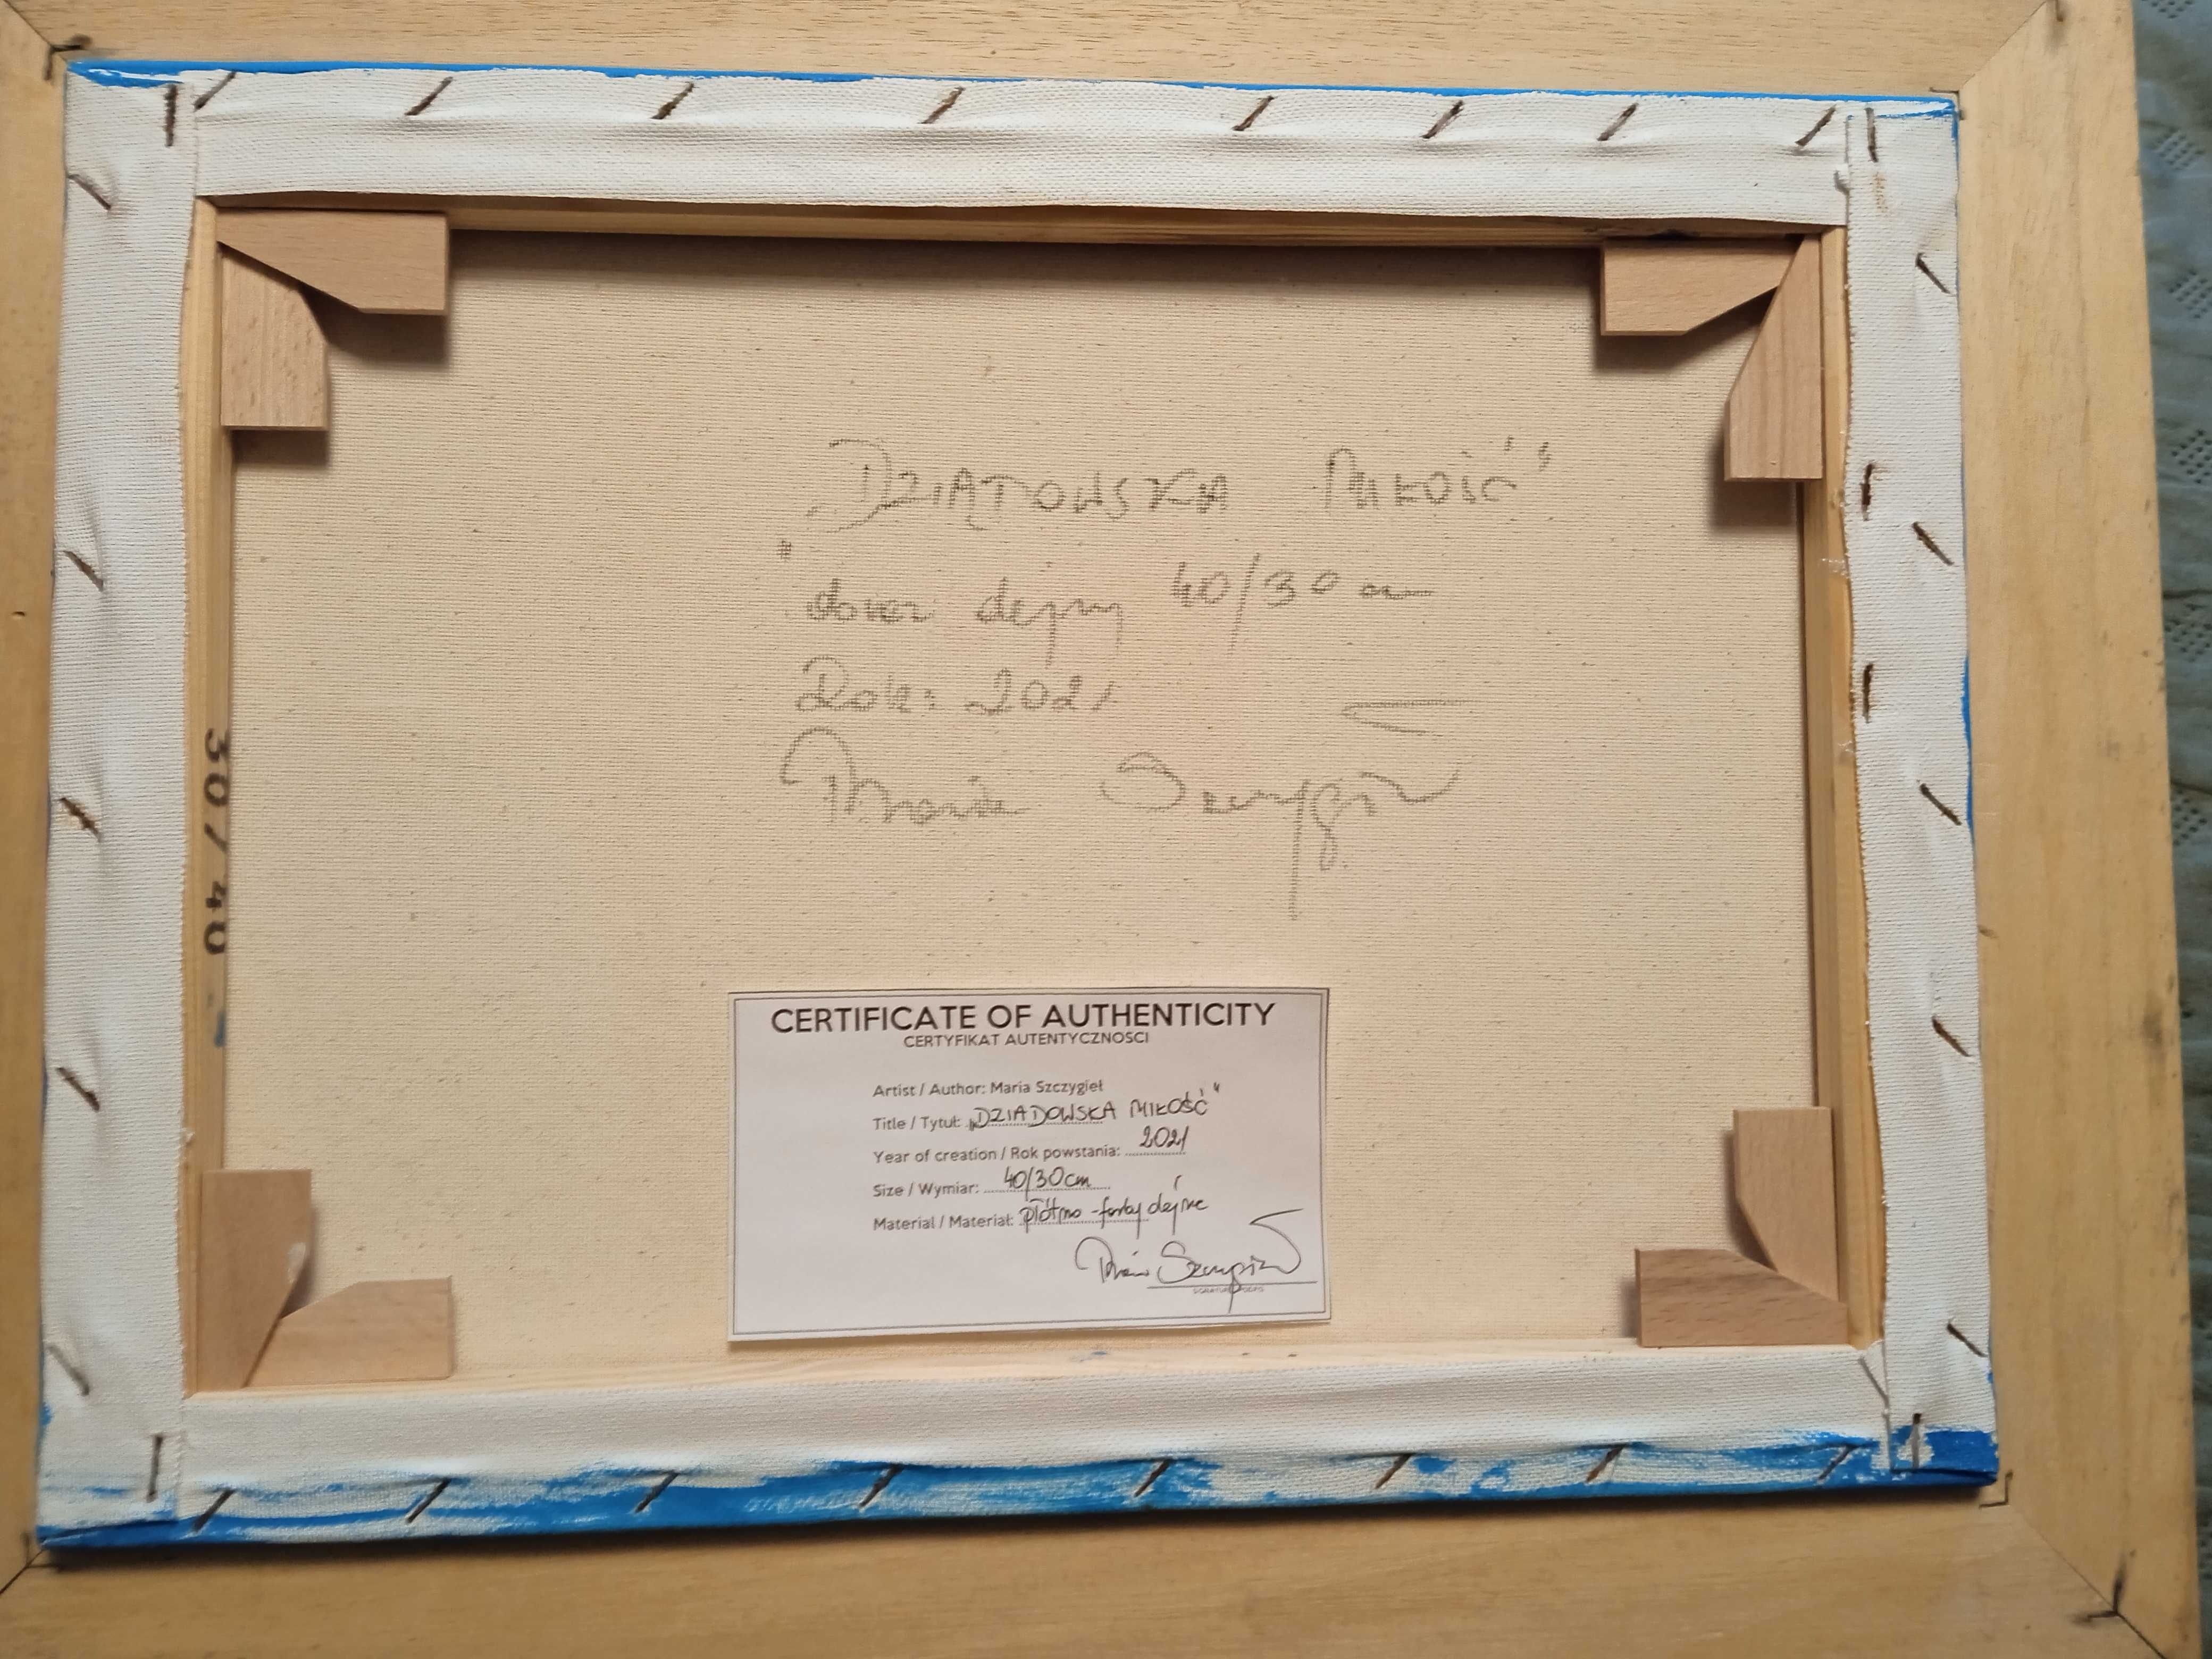 „DZIĄTOWSKA MIŁOŚĆ"
obraz olejny 40/30 cm
Rok: 2021
Maria Szczygieł
30/40
CERTIFICATE OF AUTHENTICITY
CERTYFIKAT AUTENTYCZNOSCI
Artist / Author: Maria Szczygieł
Title / Tytuł: „DZIADOWSKA MIŁOŚĆ"
Year of creation / Rok powstania: 2021
Size / Wymiar: 40/30cm
Material / Materiał: płótno - farby olejne
Maria Szczygieł